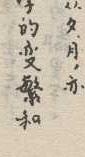 夕月，亦
的变繁和